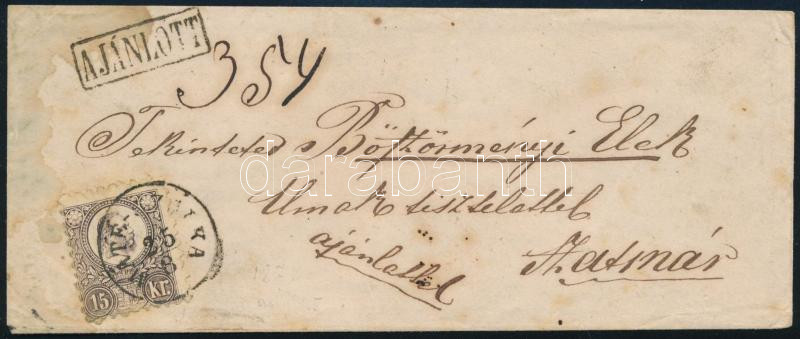 AJÁNLOTT
354
Tekintetes Böszörményi Elek
Urnak tisztelettel
ajánlattal
Szatmár
15 Kr.
darabanth